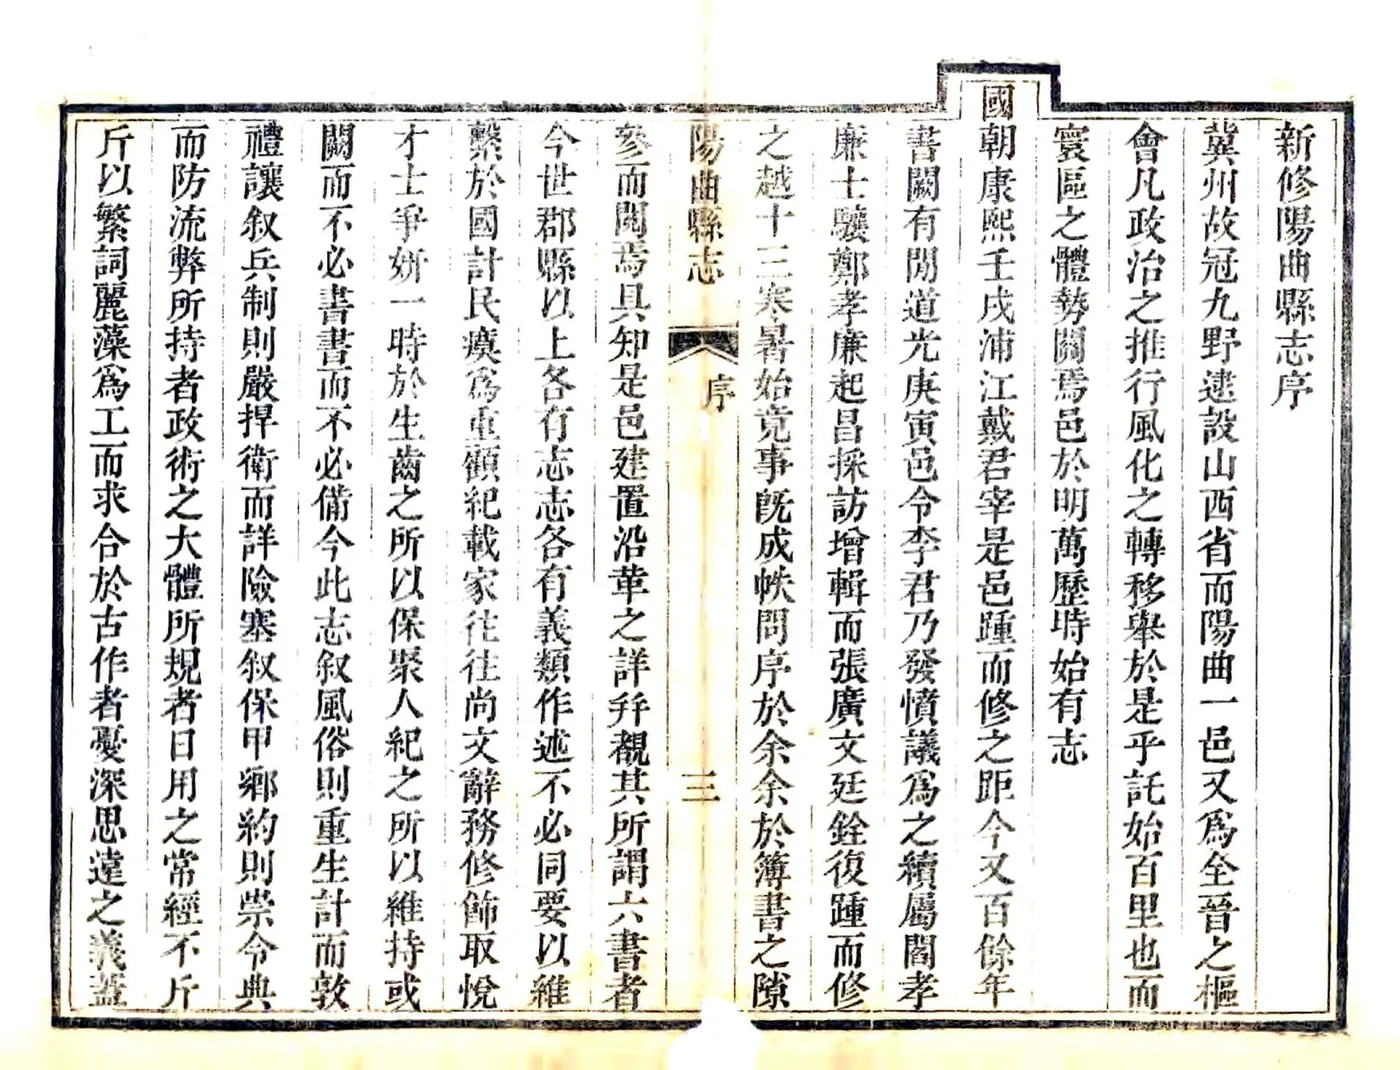 新修陽曲縣志序
冀州故冠九野逮設山西省而陽曲一邑又爲全晉之樞
會凡政治之推行風化之轉移舉於是乎託始百里也而
寰區之體勢關焉邑於明萬歷時始有志
國朝康熙壬戌浦江戴君宰是邑踵而修之距今又百餘年
書闕有間道光庚寅邑令李君乃發憤議爲之續屬閻孝
廉士驤鄭孝廉起昌採訪增輯而張廣文廷銓復踵而修
之越十三寒暑始竟事旣成帙問序於余余於簿書之隙
陽曲縣志
序
三
參而閱焉具知是邑建置沿革之詳幷覩其所謂六書者
今世郡縣以上各有志志各有義類作述不必同要以維
繫於國計民瘼爲重顧紀載家往往尚文辭務修飾取悅
才士爭姸一時於生齒之所以保聚人紀之所以維持或
闕而不必書書而不必備今此志叙風俗則重生計而敦
禮讓叙兵制則嚴捍衛而詳險塞叙保甲鄉約則崇令典
而防流弊所持者政術之大體所規者日用之常經不斤
斤以繁詞麗藻爲工而求合於古作者憂深思遠之義蓋